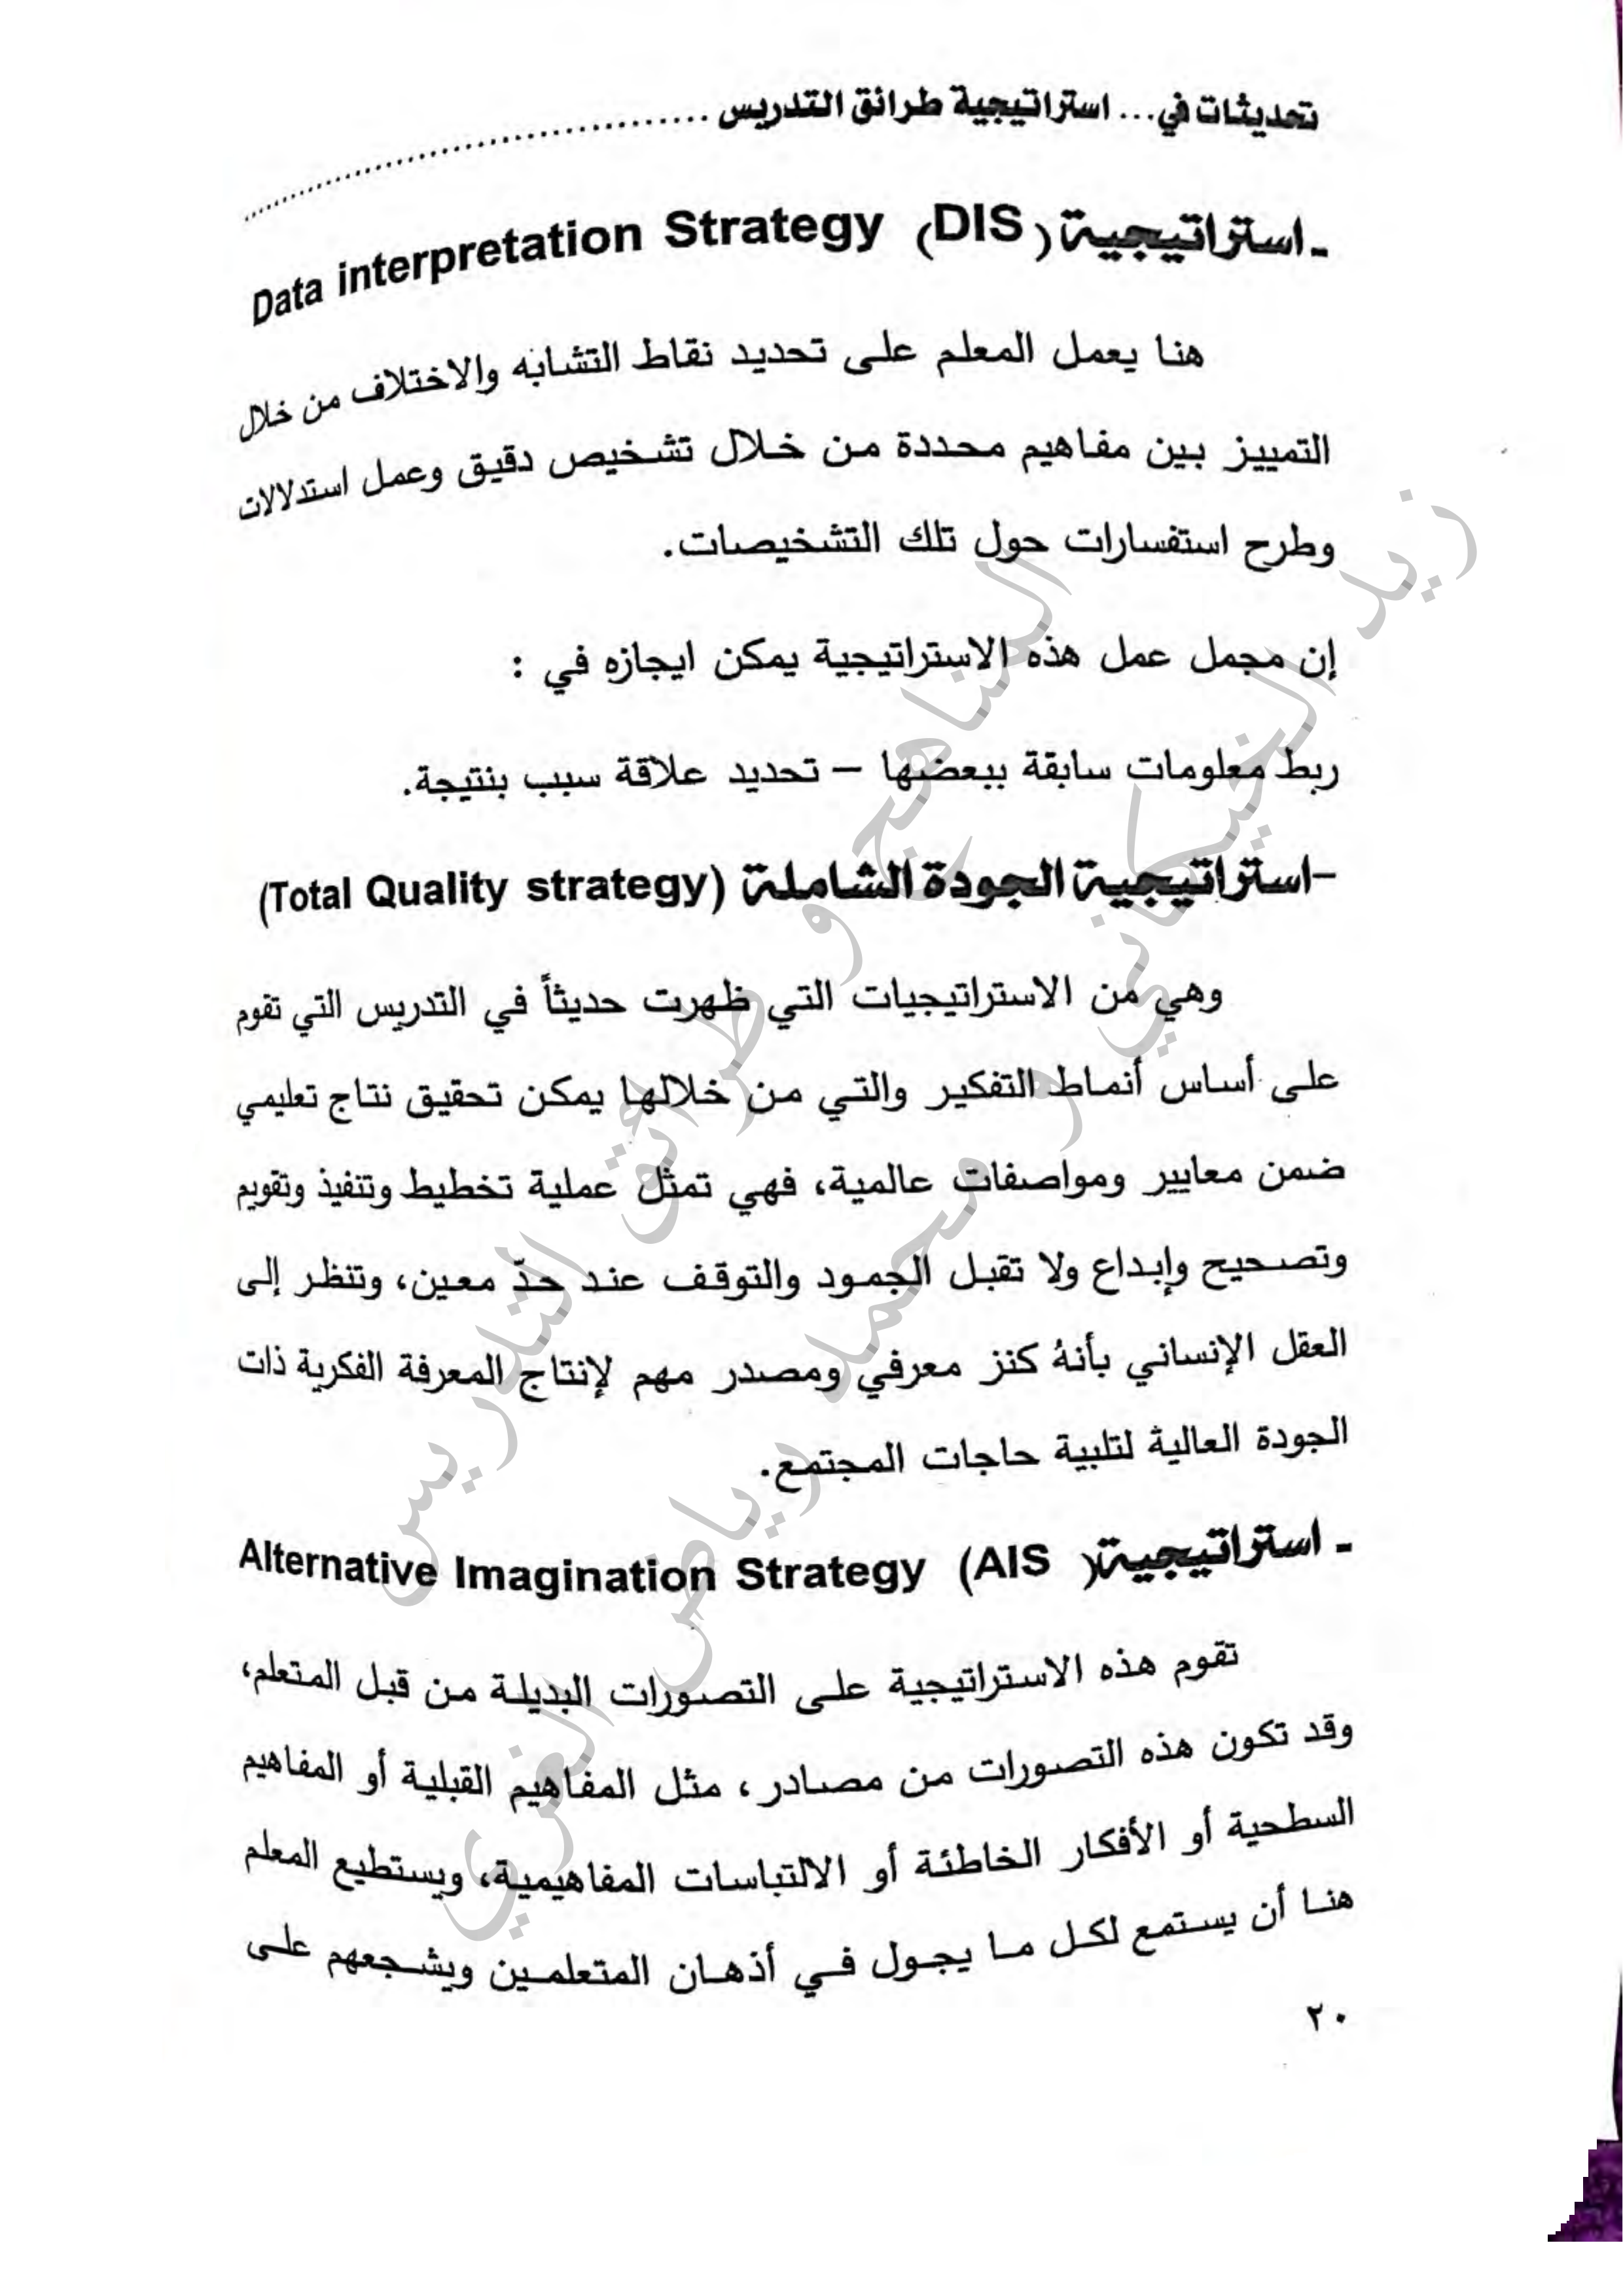 تحديثات في... استراتيجية طرائق التدريس ........................................
ـ استراتيجية (DIS) Data interpretation Strategy
هنا يعمل المعلم على تحديد نقاط التشابه والاختلاف من خلال
التمييز بين مفاهيم محددة من خلال تشخيص دقيق وعمل استدلالات
وطرح استفسارات حول تلك التشخيصات.
إن مجمل عمل هذه الاستراتيجية يمكن ايجازه في :
ربط معلومات سابقة ببعضها – تحديد علاقة سبب بنتيجة.
-استراتيجية الجودة الشاملة (Total Quality strategy)
وهي من الاستراتيجيات التي ظهرت حديثاً في التدريس التي تقوم
على أساس أنماط التفكير والتي من خلالها يمكن تحقيق نتاج تعليمي
ضمن معايير ومواصفات عالمية، فهي تمثل عملية تخطيط وتنفيذ وتقويم
وتصحيح وإبداع ولا تقبل الجمود والتوقف عند حدّ معين، وتنظر إلى
العقل الإنساني بأنهُ كنز معرفي ومصدر مهم لإنتاج المعرفة الفكرية ذات
الجودة العالية لتلبية حاجات المجتمع.
ـ استراتيجية (AIS) Alternative Imagination Strategy
تقوم هذه الاستراتيجية على التصورات البديلة من قبل المتعلم،
وقد تكون هذه التصورات من مصادر ، مثل المفاهيم القبلية أو المفاهيم
السطحية أو الأفكار الخاطئة أو الالتباسات المفاهيمية، ويستطيع المعلم
هنا أن يستمع لكل ما يجول في أذهان المتعلمين ويشجعهم على
٢٠
المناهج و طرائق التدريس
زيد الخيكاني و محمد رياض الغزي